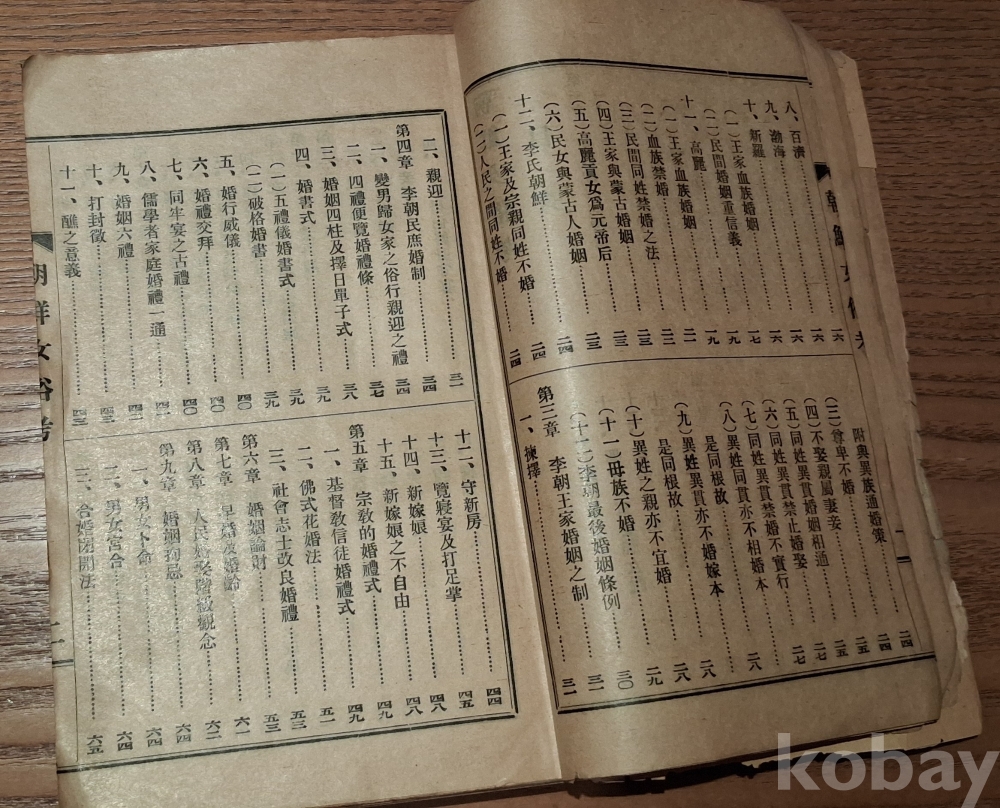 朝鮮女俗考
二
八、百濟……一六
九、渤海……一六
十、新羅……一六
(一)王家血族婚姻……一六
(二)民間婚姻重信義……一七
十一、高麗……一九
(一)王家血族婚姻……一九
(二)血族禁婚……二一
(三)民間同姓禁婚之法……二二
(四)王家與蒙古婚姻……二三
(五)高麗貢女爲元帝后……二三
(六)民女與蒙古人婚姻……二三
十二、李氏朝鮮……二四
(一)王家及宗親同姓不婚……二四
(二)人民之間同姓不婚……二四
附與異族通婚策……二四
(三)尊卑不婚……二四
(四)不娶親屬妻妾……二五
(五)同姓異貫婚姻相通……二五
(六)同姓異貫禁止婚娶……二七
(七)同姓異貫禁婚不實行……二七
(八)異姓同貫亦不相婚本
是同根故……二八
(九)異姓異貫亦不婚嫁本
是同根故……二八
(十)異姓之親亦不宜婚……二八
(十一)母族不婚……二九
(十二)李朝最後婚姻條例……三〇
第三章 李朝王家婚姻之制……三一
一、揀擇……三一
二、親迎……三一
第四章 李朝民庶婚制……三四
一、變男歸女家之俗行親迎之禮……三四
二、四禮便覽婚禮條……三七
三、婚姻四柱及擇日單子式……三八
四、婚書式……三九
(一)五禮儀婚書式……三九
(二)破格婚書……三九
五、婚行威儀……四〇
六、婚禮交拜……四〇
七、同牢宴之古禮……四〇
八、儒學者家庭婚禮一通……四一
九、婚姻六禮……四二
十、打封徵……四三
十一、醮之意義……四三
十二、守新房……四四
十三、覽寢宴及打足掌……四五
十四、新嫁娘……四八
十五、新嫁娘之不自由……四八
第五章 宗敎的婚禮式……四九
一、基督敎信徒婚禮式……四九
二、佛式花婚法……五一
三、社會志士改良婚禮……五三
第六章 婚姻論財……五三
第七章 早婚及婚齡……六一
第八章 人民婚娶階級觀念……六二
第九章 婚姻拘忌……六四
一、男女卜命……六四
二、男女宮合……六四
三、合婚閉開法……六五
朝鮮女俗考
三
kobay